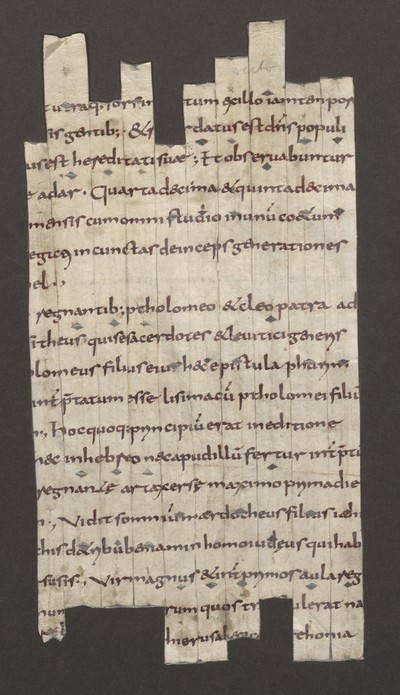 tum & illo iam tem por
gentib; · & datus est dns populi
us est hereditatis suae ; Et observabuntur
adar · Quarta decima & quinta decima
mensis cum omni studio
in cunctas deinceps generationes
el ·,
regnantib; ptholomeo & cleopatra ad
theus qui se sacerdotem & levitici generis
lomeus filius eius hanc epistula phurim
intptatum esse lisimacu ptholomei filiu
Hoc quoq; principiu erat in editione
nec in hebreo nec apud illu fertur intptu
regnante artaxerse maximo prima die
Vidit somniu mardocheus filius
chis de tribu beniamin homo iudeus qui hab
susis ·, Vir magnus & int primos aulae reg
num rum quos tr ulerat na
hierusalem chonia